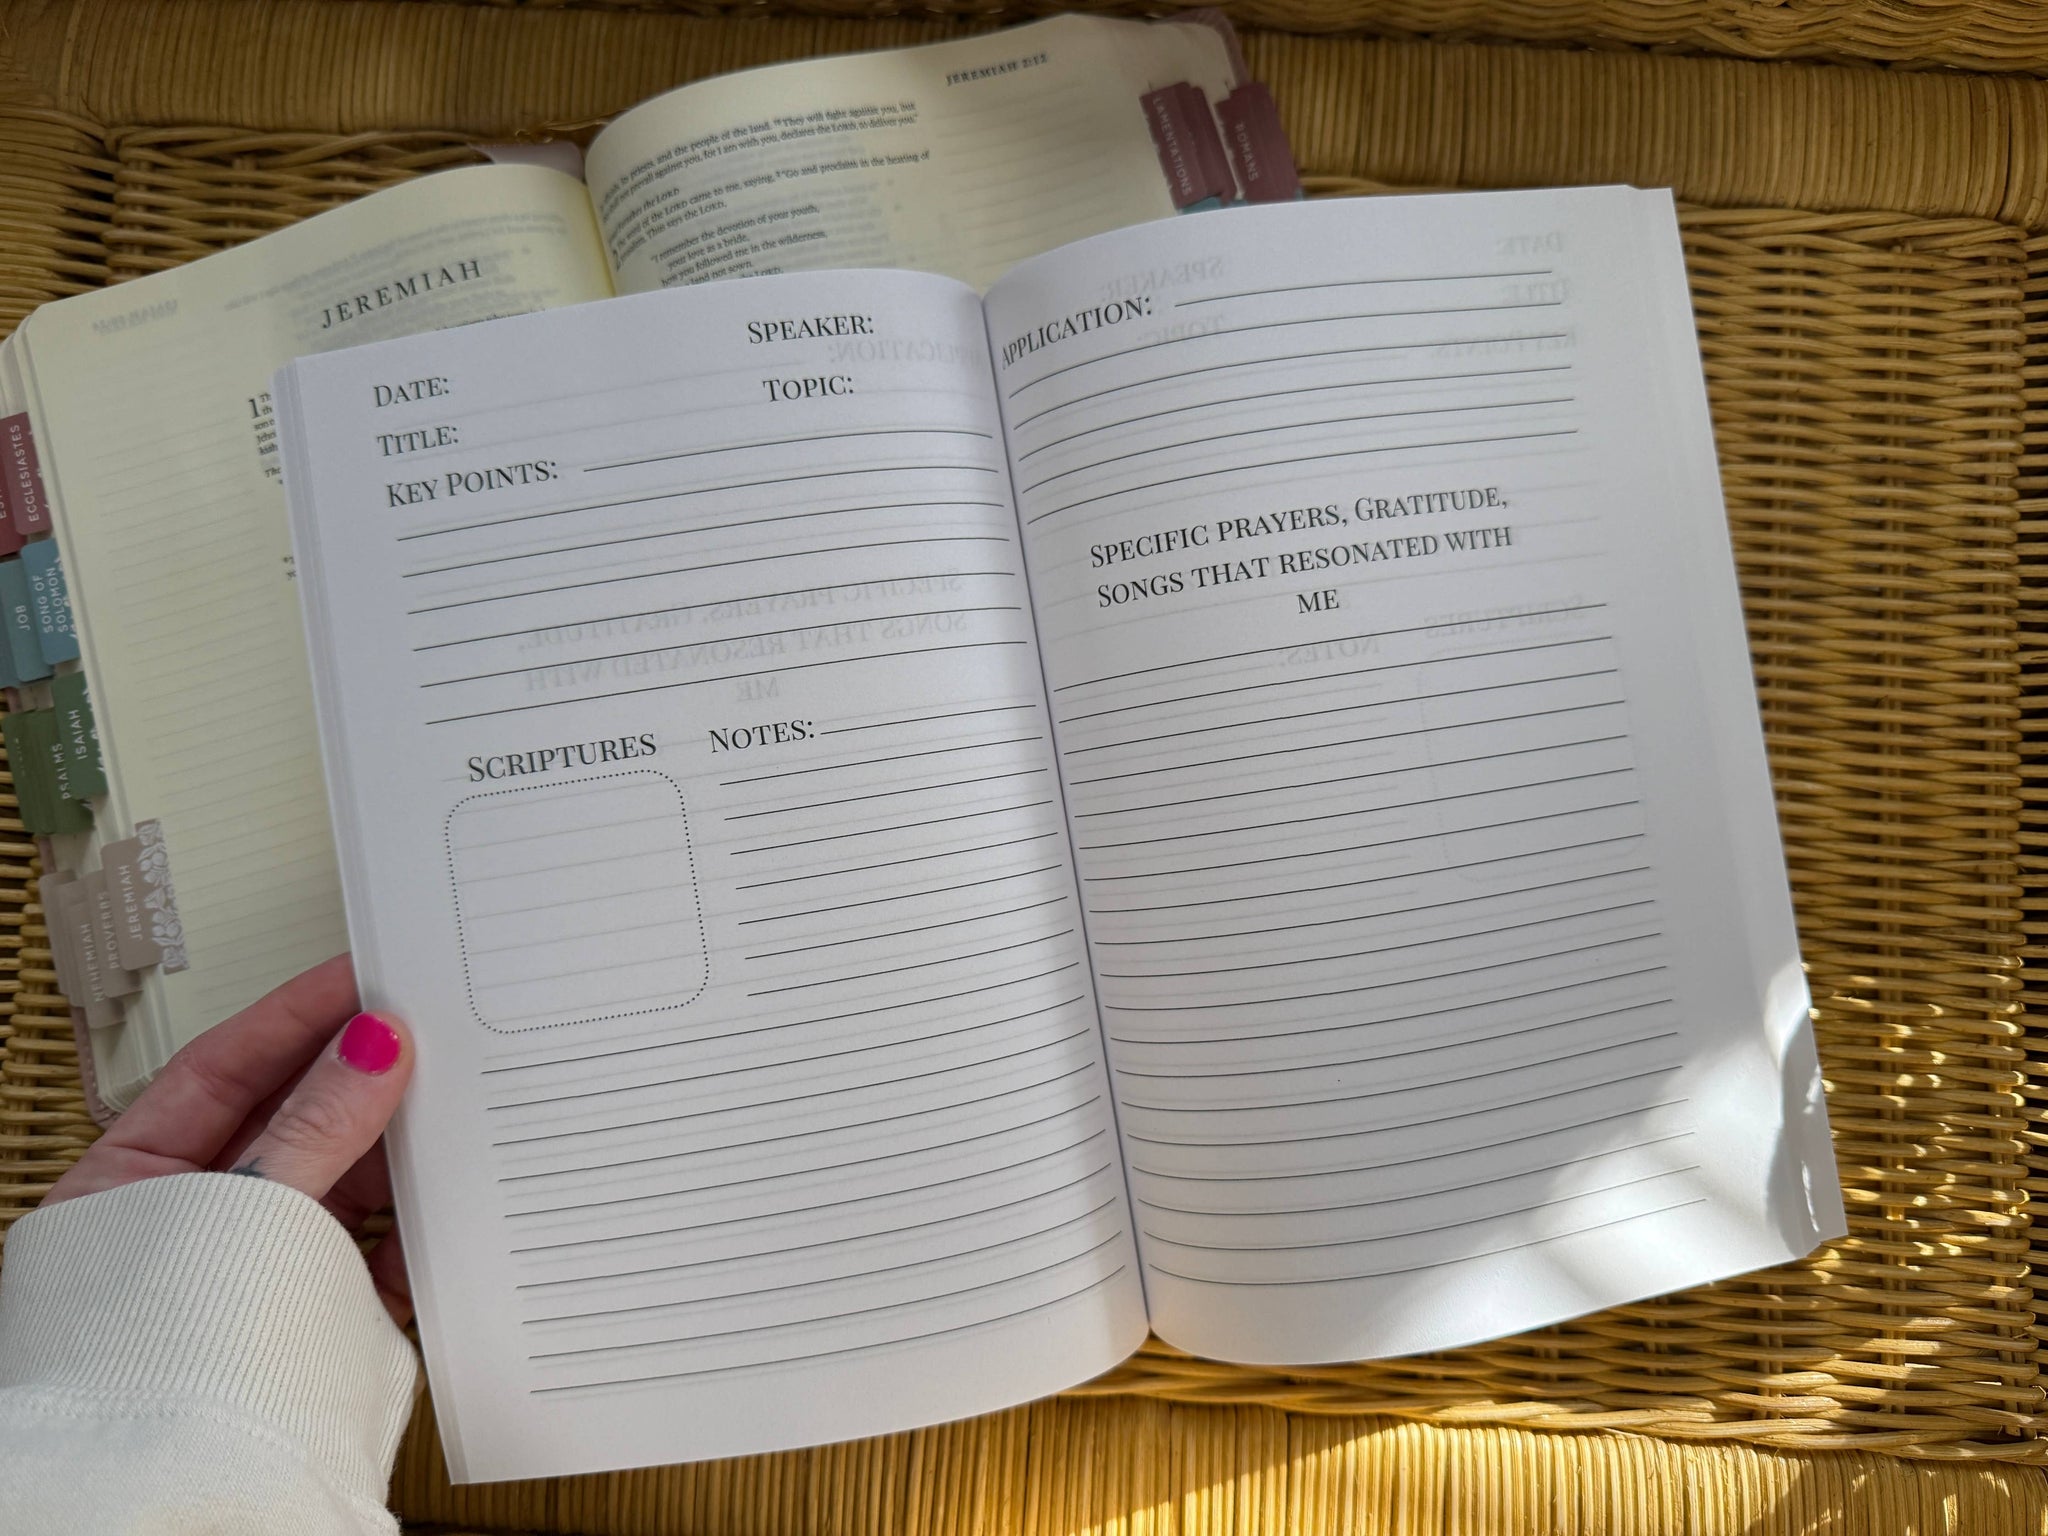 JEREMIAH 2:12
the priests, and the people of the land. 19 They will fight against you, but
prevail against you, for I am with you, declares the LORD, to deliver you."
the LORD
The word of the LORD came to me, saying, 2 "Go and proclaim in the hearing of
Thus says the LORD,
"I remember the devotion of your youth,
your love as a bride,
how you followed me in the wilderness,
land not sown.
the LORD,
JEREMIAH
1
LAMENTATIONS
ROMANS
ECCLESIASTES
JOB
SONG OF
SOLOMON
PSALMS
ISAIAH
NEHEMIAH
PROVERBS
JEREMIAH
SPEAKER:
DATE:
TOPIC:
TITLE:
KEY POINTS:
SCRIPTURES
NOTES:
APPLICATION:
SPECIFIC PRAYERS, GRATITUDE,
SONGS THAT RESONATED WITH
ME